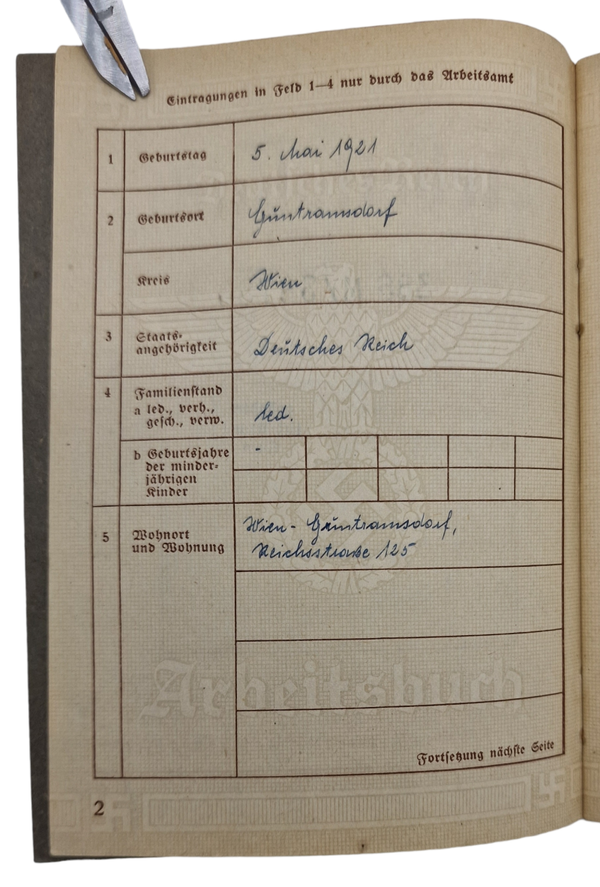 Eintragungen in Feld 1—4 nur durch das Arbeitsamt
1 Geburtstag 5. Mai 1921
2 Geburtsort Guntramsdorf
Kreis Wien
3 Staats-
angehörigkeit Deutsches Reich
4 Familienstand
a led., verh.,
gesch., verw. led.
b Geburtsjahre -
der minder-
jährigen
Kinder
5 Wohnort Wien - Guntramsdorf,
und Wohnung Reichsstraße 125
Arbeitsbuch
Fortsetzung nächste Seite
2